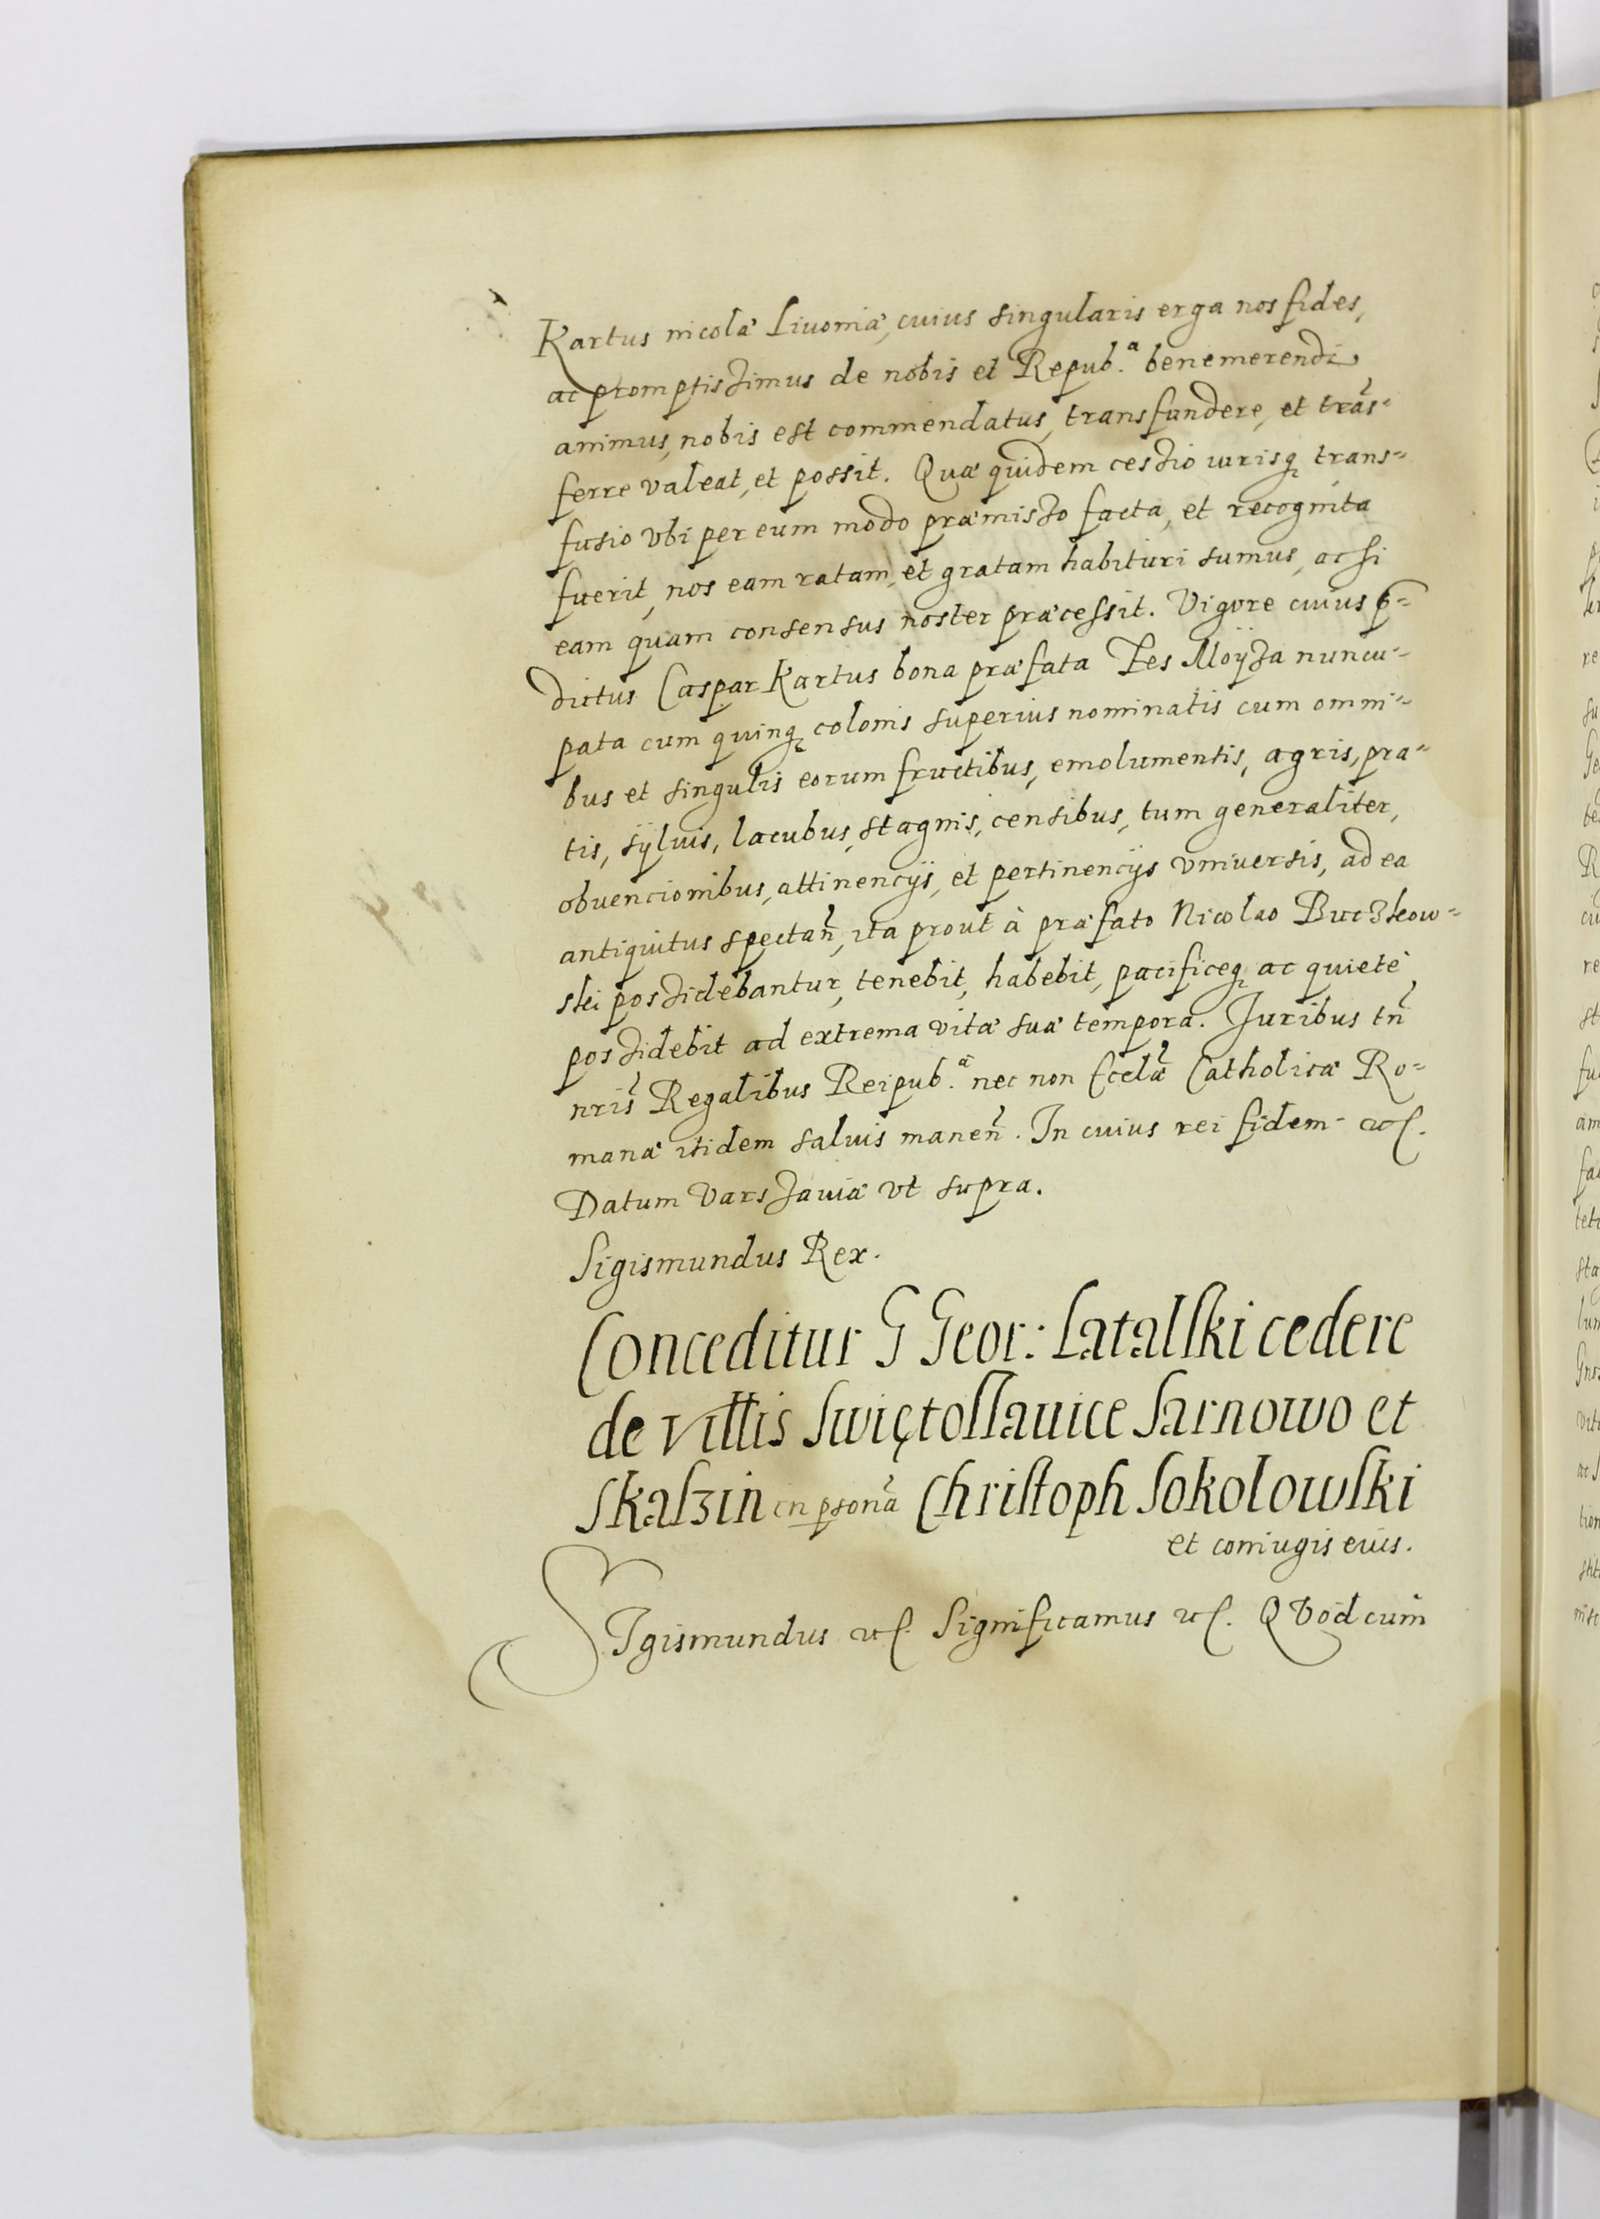 Kartus nicolæ Liuoniæ, cuius singularis erga nos fides,
ac promptissimus de nobis et Repub.ᵃ benemerendi
animus, nobis est commendatus, transfundere, et trãs-
ferre valeat, et possit. Quæ quidem cessio iurisq; trans-
fusio vbi per eum modo præmisso facta, et recognita
fuerit, nos eam ratam, et gratam habituri sumus, ac si
eam quam consensus noster præcessit. Vigore cuius p̃-
dictus Caspar Kartus bona præfata Les Moÿza nuncu-
pata cum quinq; colonis superius nominatis cum omni-
bus et singulis eorum fructibus, emolumentis, agris, pra-
tis, sÿluis, lacubus, stagnis, censibus, tum generaliter,
obuencionibus, attinencijs, et pertinencijs vniuersis, ad ea
antiquitus spectañ, ita prout à præfato Nicolao Buczkow-
ski possidebantur, tenebit, habebit, pacificeq; ac quietè
possidebit ad extrema vitæ suæ tempora. Juribus tñ
nris̃ Regalibus Reipub.ᵃ nec non Eccl̃æ Catholicæ Ro-
manæ itidem saluis maneñ. In cuius rei fidem etc.
Datum Varssauiæ vt supra.
Sigismundus Rex.
Conceditur G Geor: Latalski cedere
de villis Swiętoslauice Sarnowo et
Skaszin in p̲sonã Christoph Sokolowski
et coniugis eius.
SIgismundus etc. Significamus etc. QVod cum